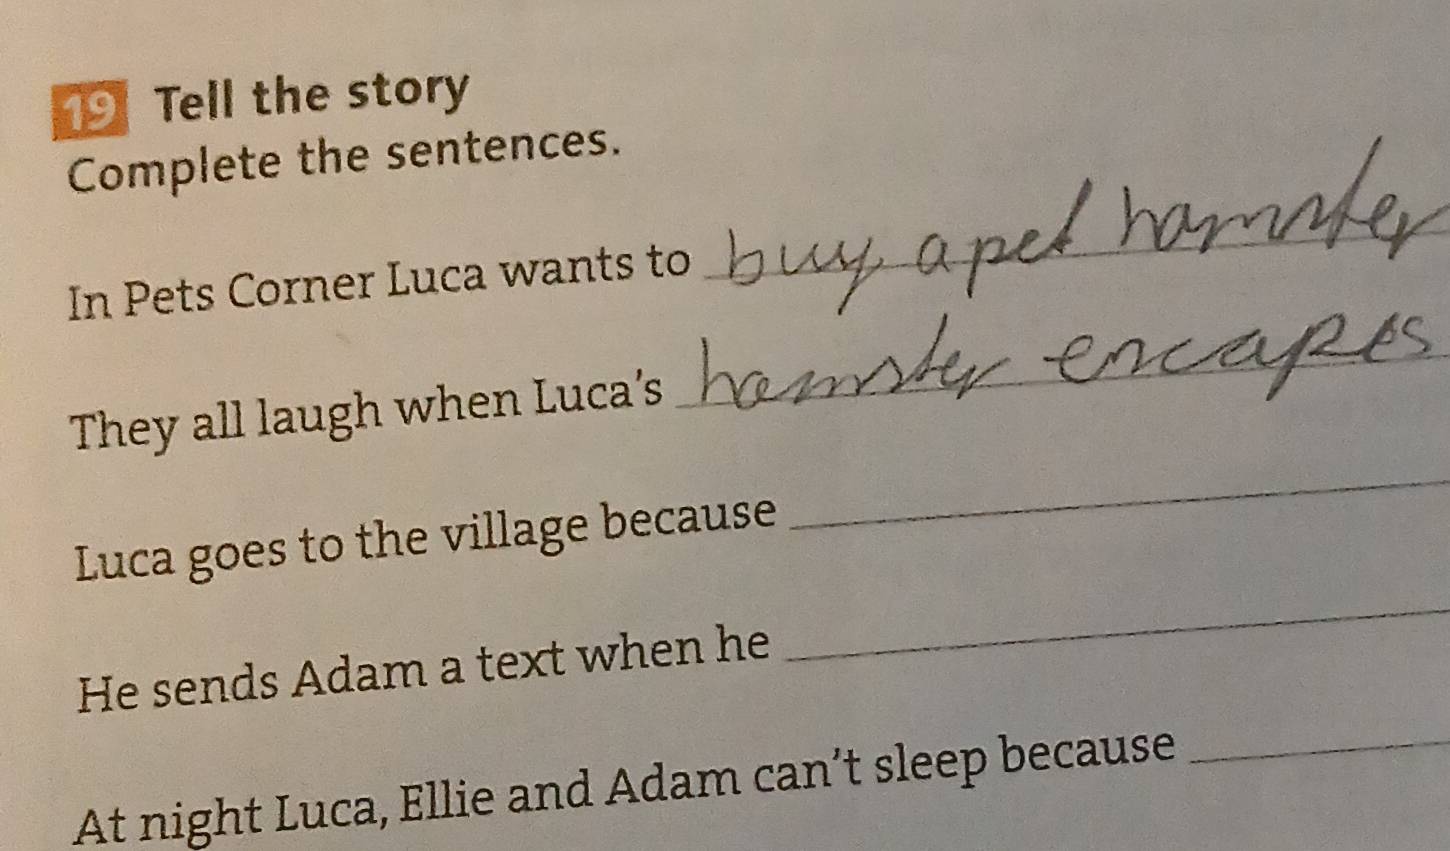 19 Tell the story
Complete the sentences.
In Pets Corner Luca wants to buy a pet hamster
They all laugh when Luca's hamster encapes
Luca goes to the village because
He sends Adam a text when he
At night Luca, Ellie and Adam can't sleep because